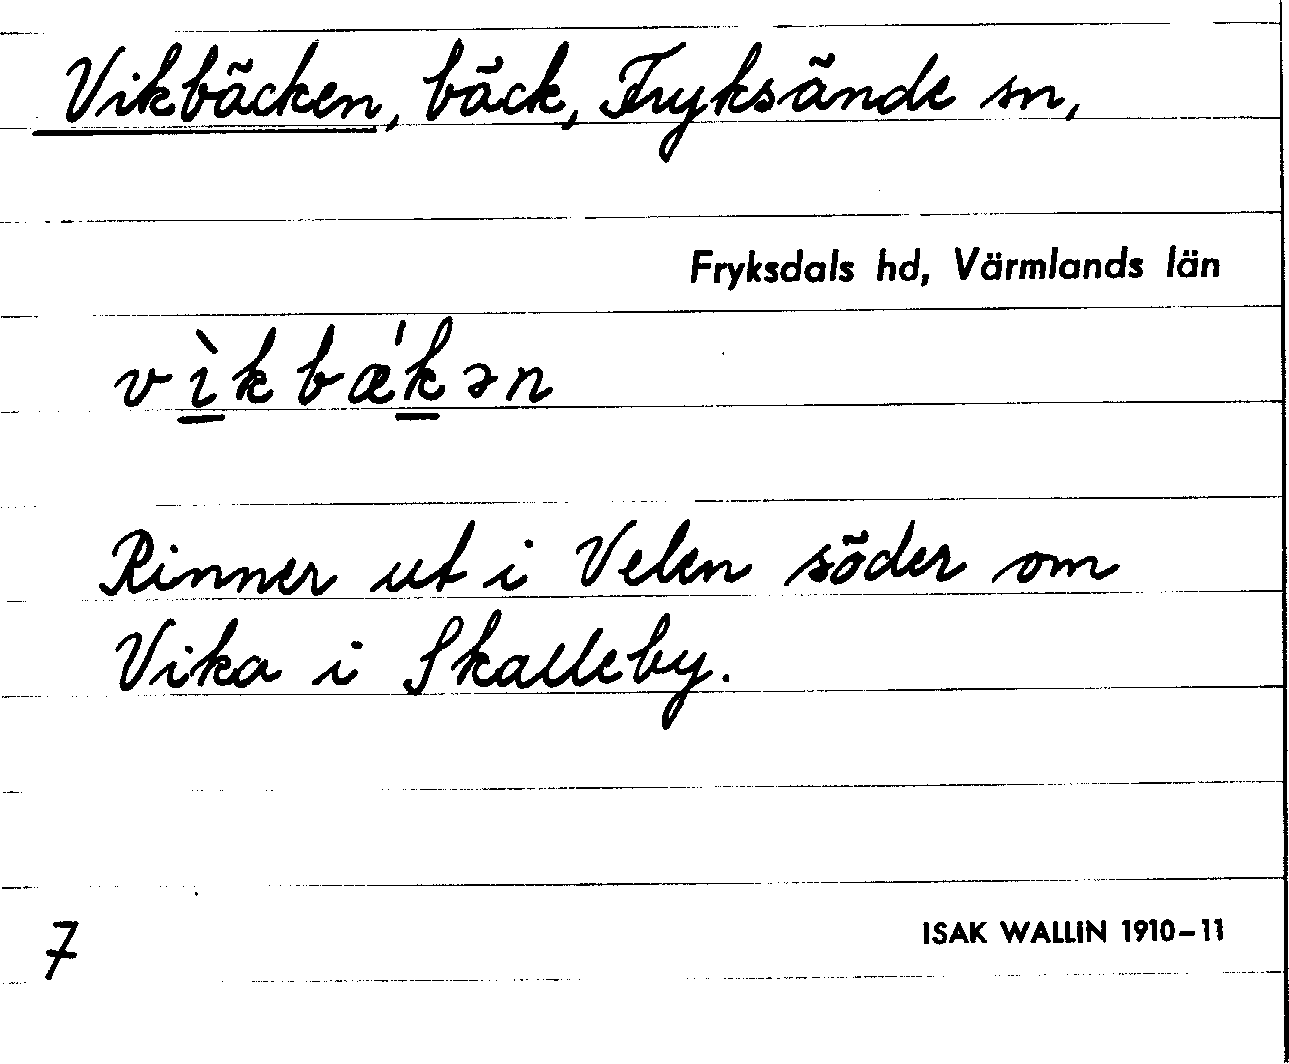 Vikbäcken, bäck, Fryksände sn,
Fryksdals hd, Värmlands län
vìkbæ'kən
Rinner ut i Velen söder om
Vika i Skalleby.
7
ISAK WALLIN 1910–11